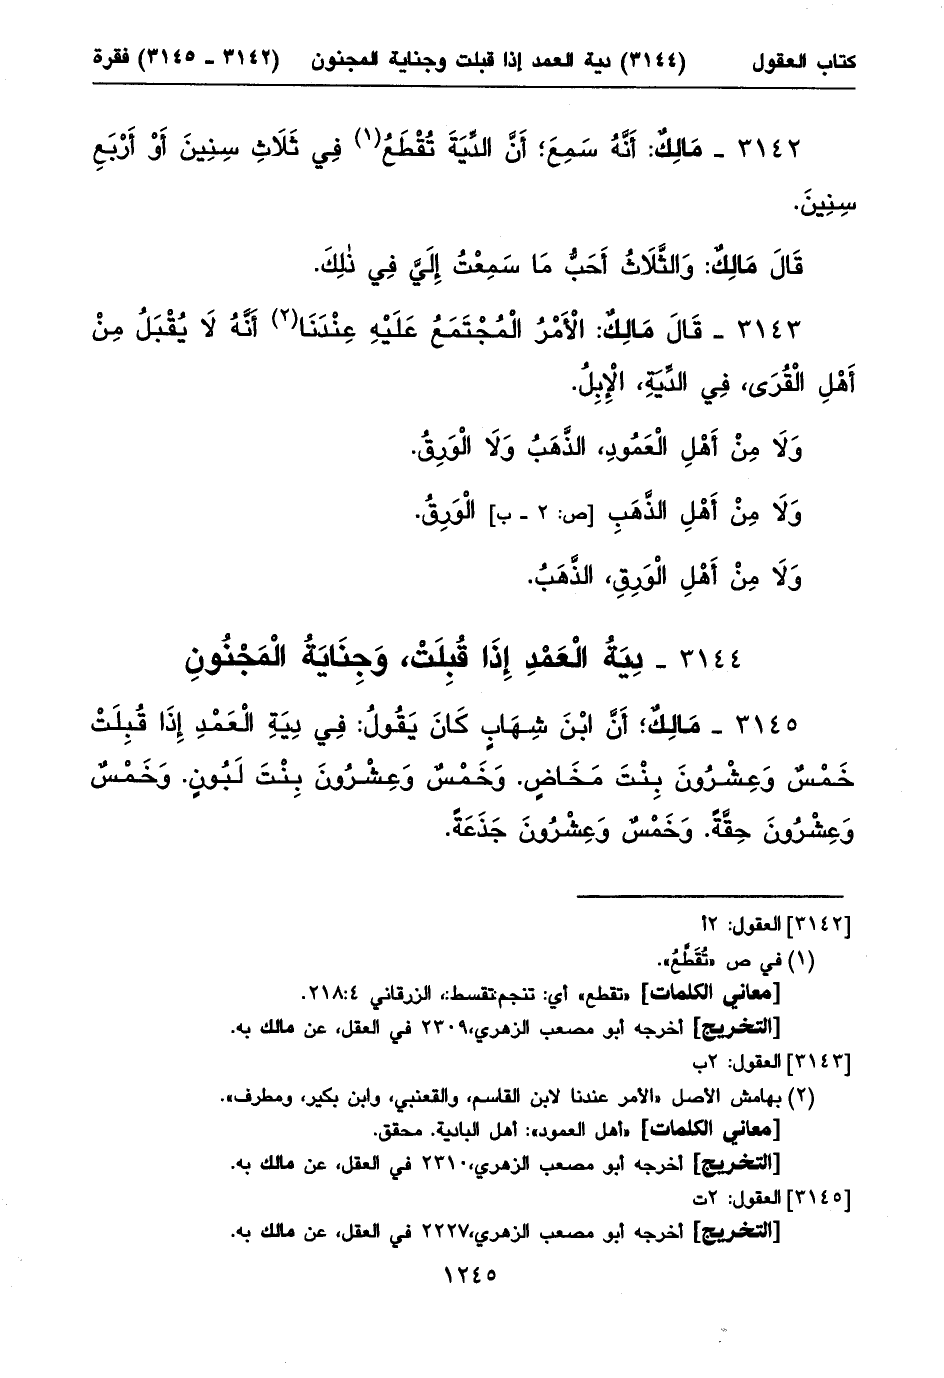 كتاب العقول (٣١٤٤) دية العمد إذا قبلت وجناية المجنون (٣١٤٢ - ٣١٤٥) فقرة
٣١٤٢ - مَالِكٌ: أَنَّهُ سَمِعَ؛ أَنَّ الدِّيَةَ تُقْطَعُ(١) فِي ثَلَاثِ سِنِينَ أَوْ أَرْبَعِ
سِنِينَ.
قَالَ مَالِكٌ: وَالثَّلَاثُ أَحَبُّ مَا سَمِعْتُ إِلَيَّ فِي ذٰلِكَ.
٣١٤٣ - قَالَ مَالِكٌ: الْأَمْرُ الْمُجْتَمَعُ عَلَيْهِ عِنْدَنَا(٢) أَنَّهُ لَا يُقْبَلُ مِنْ
أَهْلِ الْقُرَى، فِي الدِّيَةِ، الْإِبِلُ.
وَلَا مِنْ أَهْلِ الْعَمُودِ، الذَّهَبُ وَلَا الْوَرِقُ.
وَلَا مِنْ أَهْلِ الذَّهَبِ [ص: ٢ - ب] الْوَرِقُ.
وَلَا مِنْ أَهْلِ الْوَرِقِ، الذَّهَبُ.
٣١٤٤ - دِيَةُ الْعَمْدِ إِذَا قُبِلَتْ، وَجِنَايَةُ الْمَجْنُونِ
٣١٤٥ - مَالِكٌ؛ أَنَّ ابْنَ شِهَابٍ كَانَ يَقُولُ: فِي دِيَةِ الْعَمْدِ إِذَا قُبِلَتْ
خَمْسٌ وَعِشْرُونَ بِنْتَ مَخَاضٍ. وَخَمْسٌ وَعِشْرُونَ بِنْتَ لَبُونٍ. وَخَمْسٌ
وَعِشْرُونَ حِقَّةً. وَخَمْسٌ وَعِشْرُونَ جَذَعَةً.
[٣١٤٢] العقول: ٢أ
(١) في ص «تُقَطَّعُ».
[معاني الكلمات] «تقطع» أي: تنجم:تقسط:، الزرقاني ٢١٨:٤.
[التخريج] أخرجه أبو مصعب الزهري،٢٣٠٩ في العقل، عن مالك به.
[٣١٤٣] العقول: ٢ب
(٢) بهامش الأصل «الأمر عندنا لابن القاسم، والقعنبي، وابن بكير، ومطرف».
[معاني الكلمات] «أهل العمود»: أهل البادية. محقق.
[التخريج] أخرجه أبو مصعب الزهري،٢٣١٠ في العقل، عن مالك به.
[٣١٤٥] العقول: ٢ت
[التخريج] أخرجه أبو مصعب الزهري،٢٢٢٧ في العقل، عن مالك به.
١٢٤٥